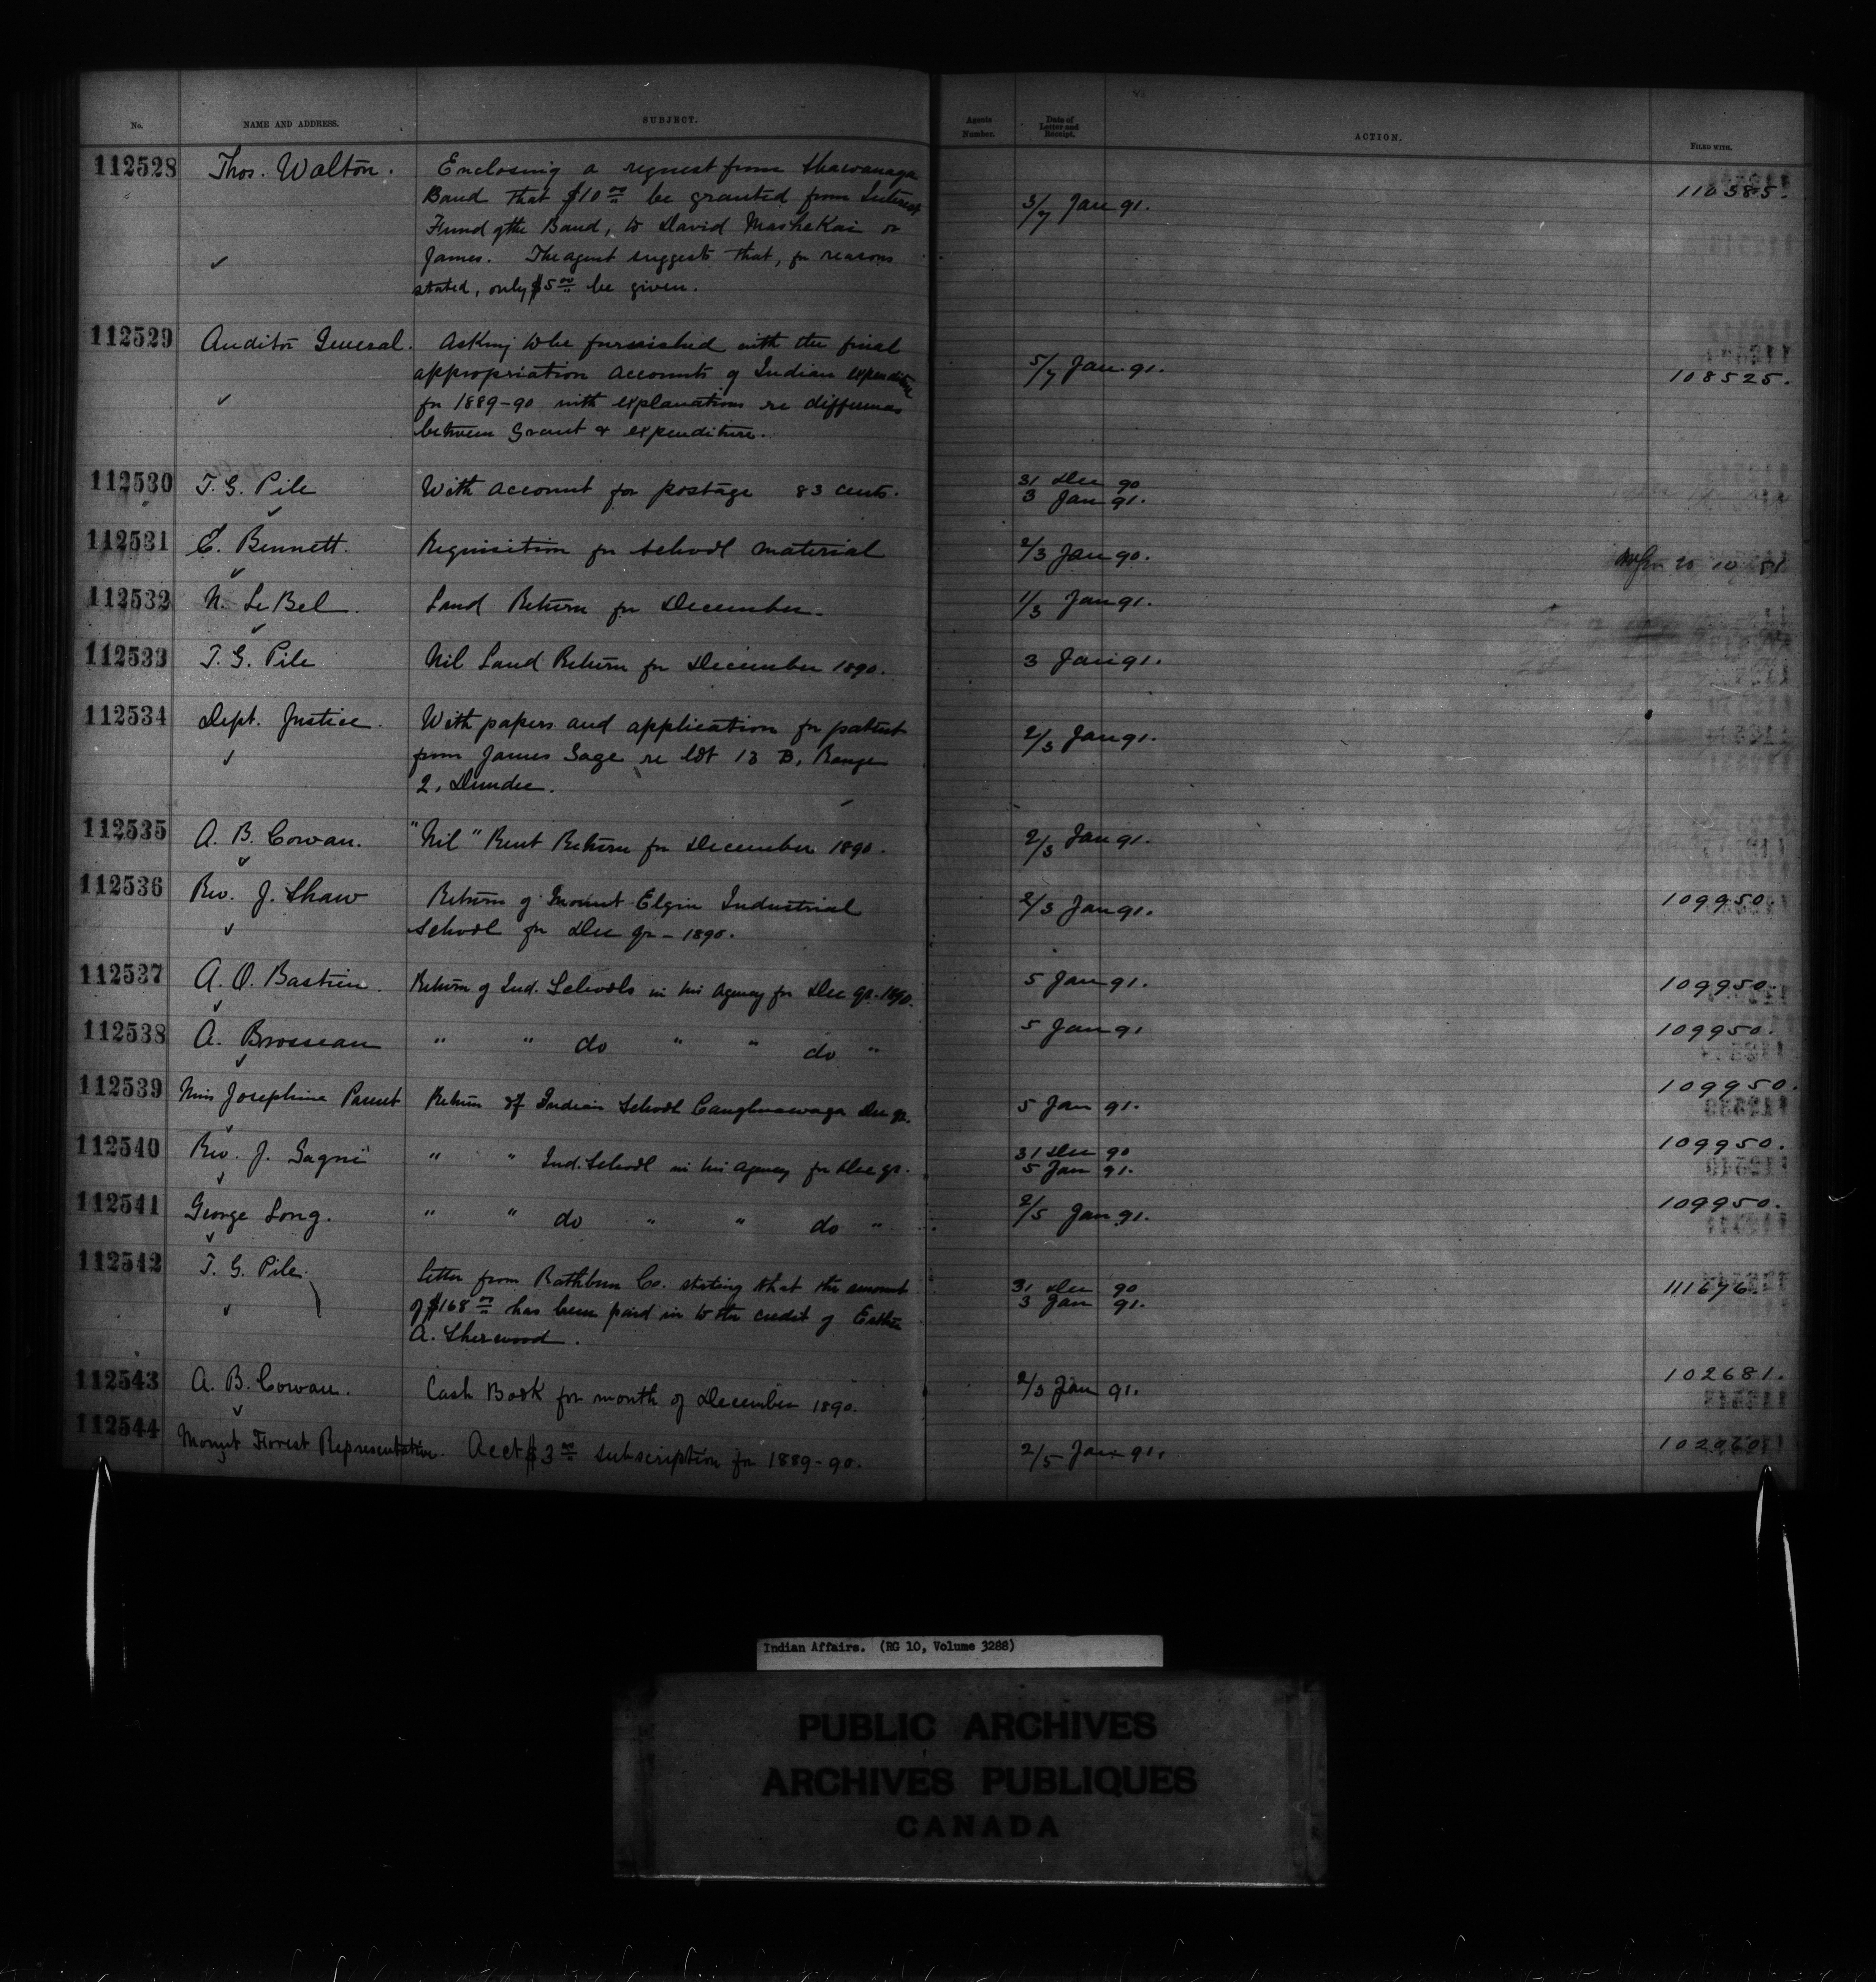 No. NAME AND ADDRESS. SUBJECT. Agents Number. Date of Letter and Receipt. ACTION. FILED WITH.
112528 Thos. Walton. Enclosing a request from Shawanaga
Band that $10 00 be granted from Interest 5/7 Jan 91. 110385.
Fund of the Band, to David MasheKai or
James. The agent suggests that, for reasons
stated, only $5 00 be given.
112529 Auditor General. Asking to be furnished with the final
appropriation accounts of Indian expenditure 5/7 Jan 91. 108525.
for 1889-90 with explanations re differences
between Grant & expenditure.
112530 T. G. Pile With account for postage 83 cents. 31 Dec 90
3 Jan 91.
112531 C. Bennett. Requisition for school material 2/3 Jan 90.
112532 N. LeBel. Land Return for December. 1/3 Jan 91.
112533 T. G. Pile Nil Land Return for December 1890. 3 Jan 91.
112534 Dept. Justice. With papers and application for patent
from James Sage re lot 13 B, Range 2/3 Jan 91.
2, Dundee.
112535 A. B. Cowan. "Nil" Rent Return for December 1890. 2/3 Jan 91.
112536 Rev. J. Shaw Return of Mount Elgin Industrial 2/3 Jan 91. 109950.
School for Dec qr - 1890.
112537 A. O. Bastien. Return of Ind. Schools in his Agency for Dec qr. 1890. 5 Jan 91. 109950.
112538 A. Brosseau " " do " " do " 5 Jan 91 109950.
112539 Miss Josephine Parent Return of Indian School Caughnawaga Dec qr. 5 Jan 91. 109950.
112540 Rev. J. Gagné " " Ind. School in his agency for Dec qr. 31 Dec 90 109950.
5 Jan 91.
112541 George Long. " " do " " do " 2/5 Jan 91. 109950.
112542 T. G. Pile. Letter from Rathbun Co. stating that the amount 31 Dec 90 111676
of $168 00 has been paid in to the credit of Esther 3 Jan 91.
A. Sherwood.
112543 A. B. Cowan. Cash Book for month of December 1890. 2/3 Jan 91. 102681.
112544 Mount Forest Representative. Acct $3 00 subscription for 1889-90. 2/5 Jan 91.
Indian Affairs. (RG 10, Volume 3288)
PUBLIC ARCHIVES
ARCHIVES PUBLIQUES
CANADA